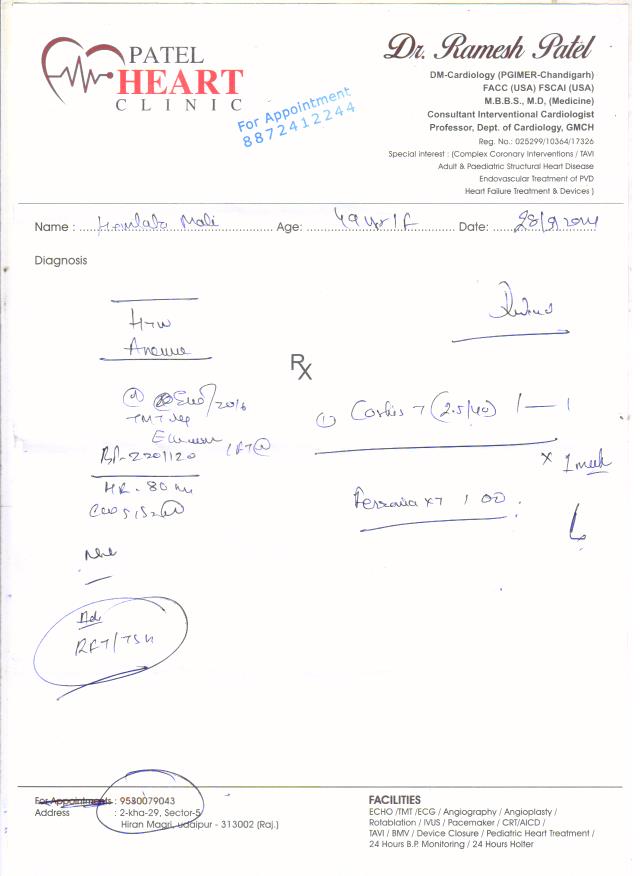 PATEL
HEART
CLINIC
Dr. Ramesh Patel
DM-Cardiology (PGIMER-Chandigarh)
FACC (USA) FSCAI (USA)
M.B.B.S., M.D, (Medicine)
Consultant Interventional Cardiologist
Professor, Dept. of Cardiology, GMCH
Reg. No.: 025299/10364/17326
Special interest : (Complex Coronary Interventions / TAVI
Adult & Paediatric Structural Heart Disease
Endovascular Treatment of PVD
Heart Failure Treatment & Devices )
For Appointment
8872412244
Name : Mali Age: 49 yr / F Date: 28/9/2024
Diagnosis
HTN
Rx
2016
TMT
BP-220/120
HR - 80
S1S2
(2.5/40) 1 — 1
x 1 week
XT 1 OD
Adv
RFT/TSH
For Appointments : 9530079043
Address : 2-kha-29, Sector-5
Hiran Magri, udaipur - 313002 (Raj.)
FACILITIES
ECHO /TMT /ECG / Angiography / Angioplasty /
Rotablation / IVUS / Pacemaker / CRT/AICD /
TAVI / BMV / Device Closure / Pediatric Heart Treatment /
24 Hours B.P. Monitoring / 24 Hours Holter